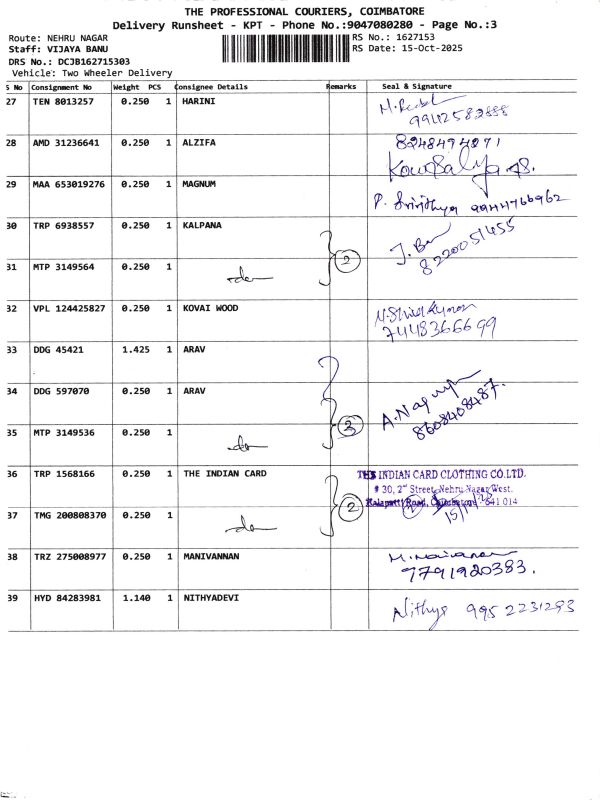 THE PROFESSIONAL COURIERS, COIMBATORE
Delivery Runsheet - KPT - Phone No.:9047080280 - Page No.:3
Route: NEHRU NAGAR RS No.: 1627153
Staff: VIJAYA BANU RS Date: 15-Oct-2025
DRS No.: DCJB162715303
Vehicle: Two Wheeler Delivery
S No Consignment No Weight PCS Consignee Details Remarks Seal & Signature
27 TEN 8013257 0.250 1 HARINI
28 AMD 31236641 0.250 1 ALZIFA 8248494271
Kowsalya
29 MAA 653019276 0.250 1 MAGNUM P. Srijthya 9944766962
30 TRP 6938557 0.250 1 KALPANA 8220051455
31 MTP 3149564 0.250 1 do 2
32 VPL 124425827 0.250 1 KOVAI WOOD
7448366699
33 DDG 45421 1.425 1 ARAV
34 DDG 597070 0.250 1 ARAV 8608408487.
35 MTP 3149536 0.250 1 do 3
36 TRP 1568166 0.250 1 THE INDIAN CARD THE INDIAN CARD CLOTHING CO.LTD.
# 30, 2nd Street, Nehru Nagar West.
Kalapatti Road, Coimbatore - 641 014
37 TMG 200808370 0.250 1 do 2
38 TRZ 275008977 0.250 1 MANIVANNAN
7791920383.
39 HYD 84283981 1.140 1 NITHYADEVI Nithya 9952231293